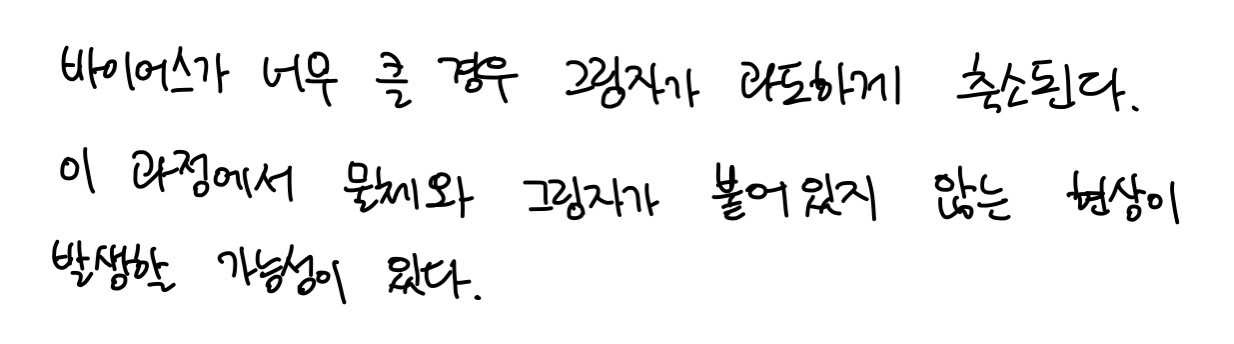 바이어스가 너무 클 경우 그림자가 과도하게 축소된다.
이 과정에서 물체와 그림자가 붙어있지 않는 현상이
발생할 가능성이 있다.